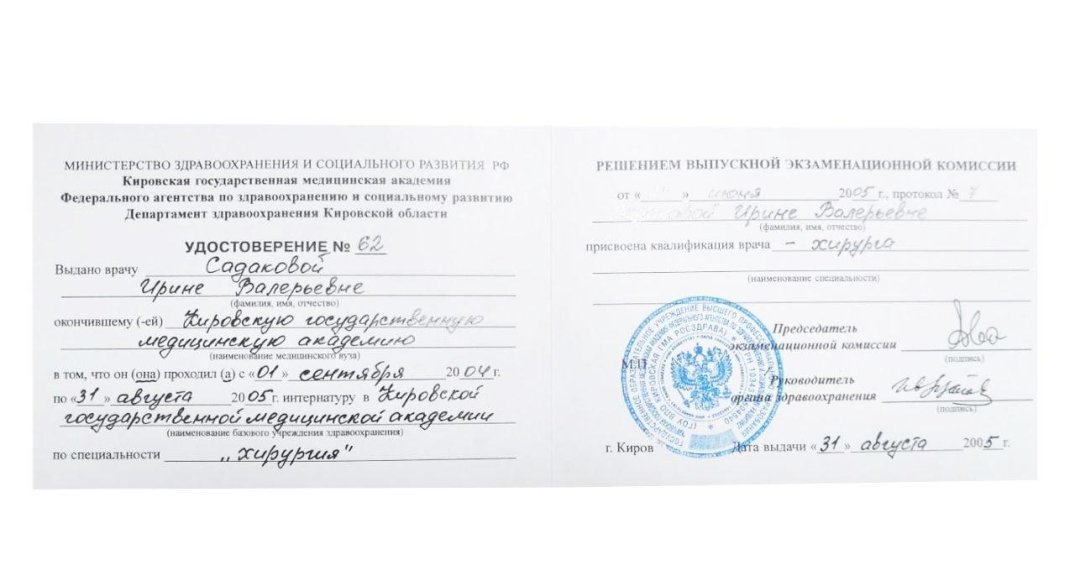 МИНИСТЕРСТВО ЗДРАВООХРАНЕНИЯ И СОЦИАЛЬНОГО РАЗВИТИЯ РФ
Кировская государственная медицинская академия
Федерального агентства по здравоохранению и социальному развитию
Департамент здравоохранения Кировской области
УДОСТОВЕРЕНИЕ № 62
Выдано врачу Садаковой
Ирине Валерьевне
(фамилия, имя, отчество)
окончившему (-ей) Кировскую государственную
медицинскую академию
(наименование медицинского вуза)
в том, что он (она) проходил (а) с «01» сентября 2004 г.
по «31» августа 2005 г. интернатуру в Кировской
государственной медицинской академии
(наименование базового учреждения здравоохранения)
по специальности „хирургия"
РЕШЕНИЕМ ВЫПУСКНОЙ ЭКЗАМЕНАЦИОННОЙ КОМИССИИ
от « » июня 2005 г., протокол № 7
Ирине Валерьевне
(фамилия, имя, отчество)
присвоена квалификация врача – хирурга
(наименование специальности)
Председатель
экзаменационной комиссии
(подпись)
М.П.
Руководитель
органа здравоохранения
(подпись)
г. Киров Дата выдачи «31» августа 2005 г.